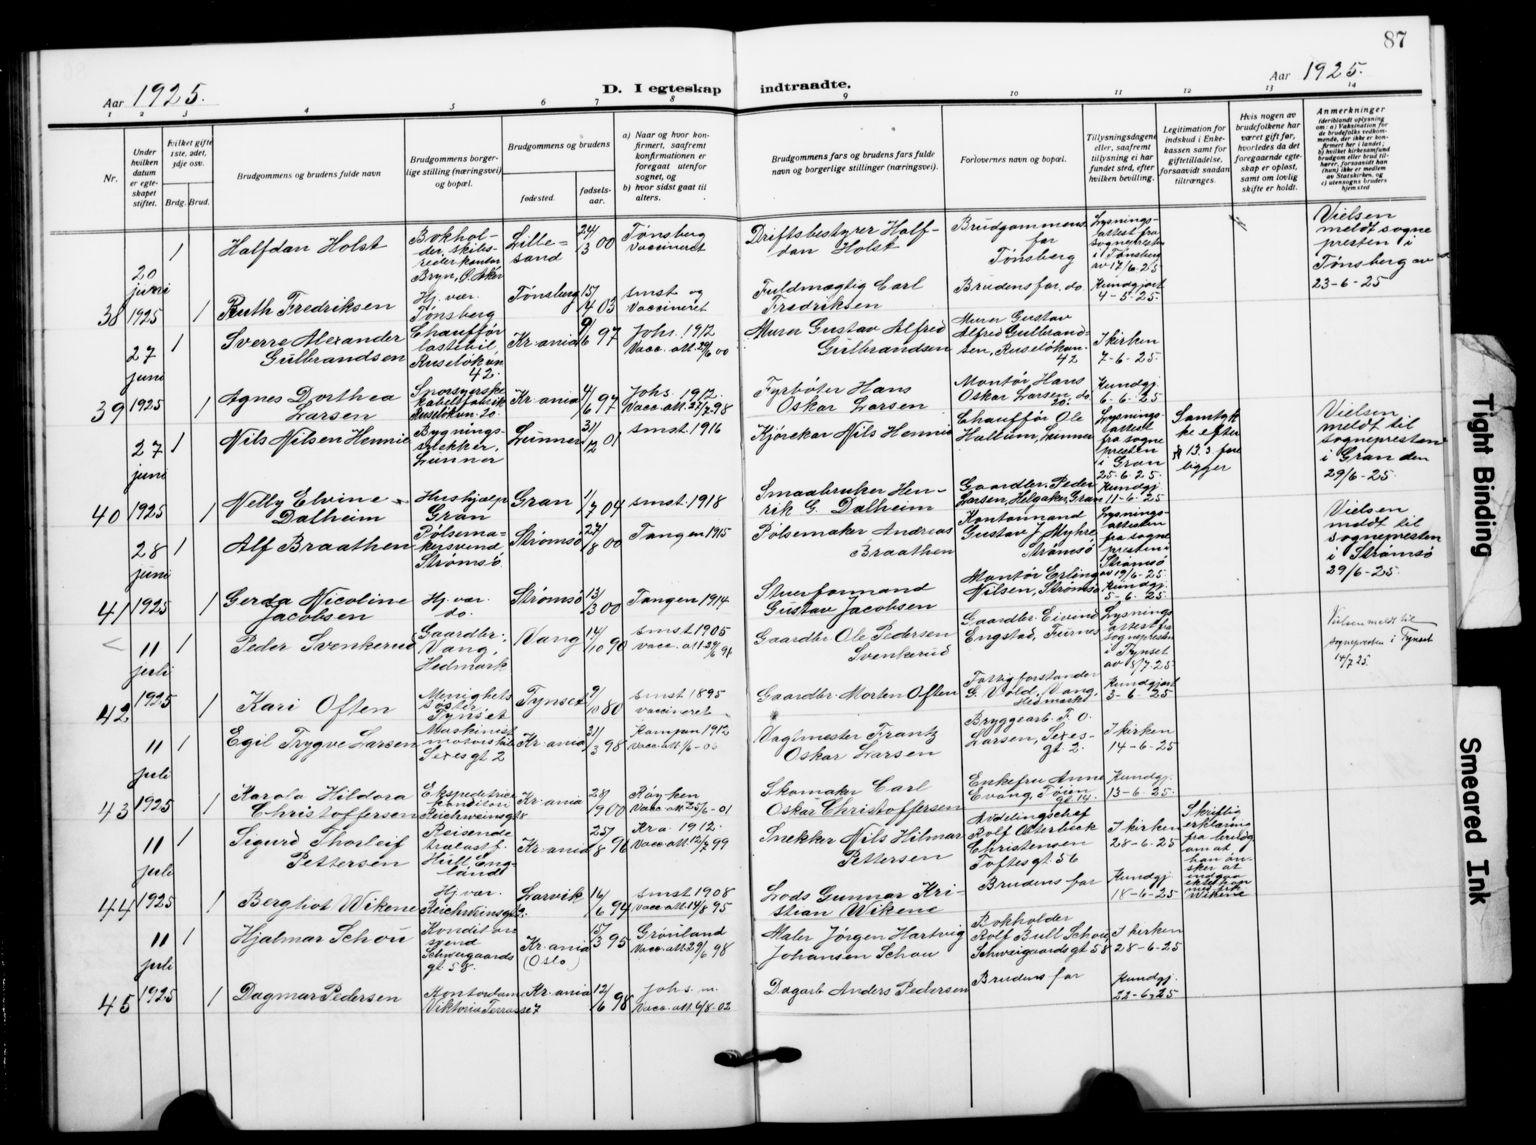 87
Aar 1925.
D. I egteskap indtraadte.
Aar 1925.
1 2 3 4 5 6 7 8 9 10 11 12 13 14
Nr.
Under hvilken datum er egteskapet stiftet.
Hvilket gifte 1ste, 2det, 3dje osv.
Brdg. Brud.
Brudgommens og brudens fulde navn
Brudgommens borgerlige stilling (næringsvei) og bopæl.
Brudgommens og brudens
fødested.
fødselsaar.
a) Naar og hvor konfirmert, saafremt konfirmationen er foregaat utenfor sognet, og
b) hvor sidst gaat til alters.
Brudgommens fars og brudens fars fulde navn og borgerlige stillinger (næringsvei).
Forlovernes navn og bopæl.
Tillysningsdagene eller, saafremt tillysning ei har fundet sted, efter hvilken bevilling.
Legitimation for indskud i Enkekassen samt for giftetilladelse, forsaavidt saadan tiltrænges.
Hvis nogen av brudefolkene har været gift før, hvorledes da det foregaaende egteskap er opløst, samt om lovlig skifte er holdt.
Anmerkninger
(deriblandt oplysning om: a) Vaksination for de brudefolks vedkommende, der ikke er konfirmert her i landet; b) hvilket kirkesamfund brudgom eller brud tilhører, forsaavidt han (hun) ikke er medlem av Statskirken, og c) utensogns bruders hjemsted
38 20 juni 1925
1 Halfdan Holst
Bokholder, skibsrederkontor Bryn, Ø. Aker
Lillesand 24/3 00
Tønsberg Vaccineret
Driftsbestyrer Halfdan Holst
Brudgommens far Tønsberg
Lysningsattest fra sognepresten i Tønsberg av 17/6-25
Vielsen meldt sognepresten i Tønsberg av 23-6-25
1 Ruth Fredriksen
Hj. vær. Tønsberg
Tønsberg 15/4 03
smst og Vaccineret
Fuldmægtig Carl Fredriksen
Brudens far, do.
Kundgjort 4-5-25
39 27 juni 1925
1 Sverre Alexander Gulbrandsen
Chauffør lastebil, Ruseløkvn. 42.
Kr.ania 9/6 97
Johs. 1912 Vacc. att. 29/6 00
Murer Gustav Alfred Gulbrandsen
Murer Gustav Alfred Gulbrandsen, Ruseløkvn. 42
I kirken 7-6-25
1 Agnes Dorthea Larsen
Ruseløkvn. 20.
Kr.ania 4/6 97
Johs. 1912. Vacc. att. 27/7-98
Fyrbøter Hans Oskar Larsen
Montør Hans Oskar Larsen, do. 20.
Kundgj. 6-6-25
40 27 juni 1925
1 Nils Nilsen Hennie
Bygningssnekker, Lunner
Lunner 31/12 01
smst. 1916
Kjørekar Nils Hennie
Chauffør Ole Hallum, Lunner
Lysningsattest fra sognepresten i Gran 25-6-25
Samtykke efter § 13.3 foreligger
Vielsen meldt til sognepresten i Gran den 29/6-25.
1 Nelly Elvine Dalheim
Hushjælp Gran
Gran 1/7 04
smst 1918
Smaabruker Henrik G. Dalheim
Gaardbr. Peder Larsen, Gran
Kundgj. 11-6-25
41 28 juni 1925
1 Alf Braathen
Pølsemakersvend Strømsø
Strømsø 27/8 00
Tangen 1915
Pølsemaker Andreas Braathen
Kontormand Gustav J. Myhre, Strømsø
Lysningsattesten fra sognepresten i Strømsø av 19/6-25
Vielsen meldt til sognepresten i Strømsø 29/6-25.
1 Gerda Nicoline Jacobsen
Hj. vær. do.
Strømsø 13/3 00
Tangen 1914
Stuerformand Gustav Jacobsen
Montør Erling Nilsen, Strømsø
Kundgj. 5-6-25
42 11 juli 1925
1 Peder Svenkerud
Gaardbr., Vang, Hedmark
Vang 14/10 90
smst 1905 vacc. att 29/6 91
Gaardbr Ole Pedersen Svenkerud
Gaardbr. Eivind Engstad, Furnes
Lysningsattest fra sognepresten i Tynset av 8/7-25
Vielsen meldt til sognepresten i Tynset 14/7 25
1 Kari Often
Menighetssøster Tynset
Tynset 9/10 80
smst 1895 vaccineret
Gaardbr. Morten Often
Fattigforstander G. Vold, Vang, Hedmark
Kundgjort 3-6-25
43 11 juli 1925
1 Egil Trygve Larsen
Maskinist Sexesgt 2
Kr.ania 31/3 98
Kampen 1912
Vagtmester Frantz Oskar Larsen
Bryggearb. F. O. Larsen, Sexesgt 2.
I kirken 14-6-25
1 Karola Hildora Christoffersen
Ekspeditrice konditori Reichweinsgt 8
Kr.ania 28/1 900
Røyken Vacc. att 25/6-01
Skomaker Carl Oskar Christoffersen
Enkefru Anne Evang, Tøiengt. 14.
Kundgj. 13-6-25
44 11 juli 1925
1 Sigurd Thorleif Pettersen
Reisende Hull, England
Kr.ania 25/8 96
Kra 1912. Vacc att 12/7 99
Snekker Nils Hilmar Pettersen
Avdelingschef Rolf Østerbech Christensen Toftesgt. 56
I kirken 28-6-25
Skriftlig erklæring fra brudg om at han ønsker at indgaa ekteskap med frk Wikene
1 Bergliot Wikene
Hj. vær. Reichweinsgt
Larvik 16/6 94
smst 1908 vacc att 14/8 95
Lods Gunnar Kristian Wikene
Brudens far
Kundgj. 18-6-25
45 11 juli 1925
1 Hjalmar Schou
Konditorsvend Schweigaardsgt 58.
Kr.ania (Oslo) 15/3 95
Grønland Vacc. att 29/6 98
Maler Jørgen Hartvig Johansen Schou
Bokholder Rolf Bull Schou Schweigaardsgt 58
I kirken 28-6-25
1 Dagmar Pedersen
Kontordame Viktoria Terrasse 7
Kr.ania 12/6 98
Johs. m. Vacc. att 6/8-02
Dagarb Anders Pedersen
Brudens far
Kundgj. 22-6-25
Tight Binding
Smeared Ink